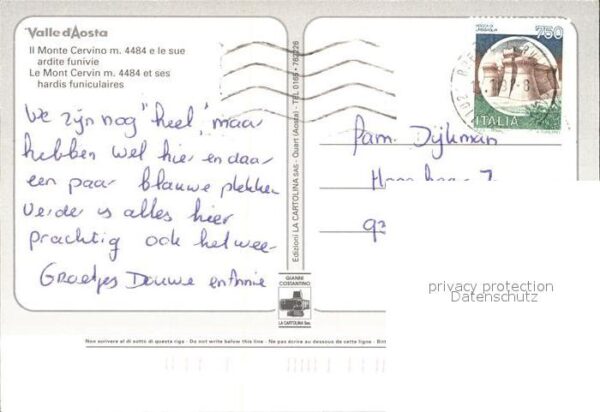 Valle d'Aosta
Il Monte Cervino m. 4484 e le sue
ardite funivie
Le Mont Cervin m. 4484 et ses
hardis funiculaires
We zijn nog "heel" maar
hebben wel hier en daar
een paar blauwe plekken
Verder is alles hier
prachtig ook het weer
Groetjes Douwe en Annie
Edizioni LA CARTOLINA SAS - Quart (Aosta) - TEL. 0165
GIANNI
COSTANTINO
LA CARTOLINA Sas
750
ITALIA
Fam. Dijkman
privacy protection
Datenschutz
Non scrivere al di sotto di questa riga - Do not write below this line - Ne pas écrire au dessous de cette ligne - Bitt